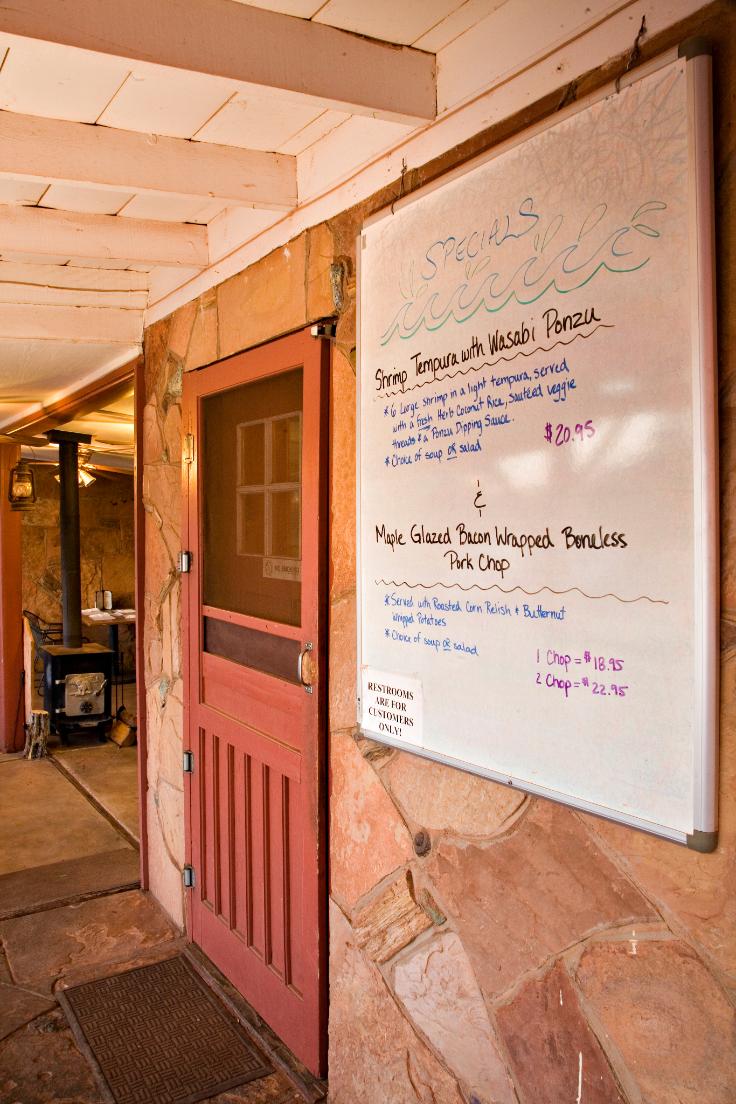 SPECIALS
Shrimp Tempura with Wasabi Ponzu
* 6 Large shrimp in a light tempura, served
with a fresh Herb Coconut Rice, sautéed veggie
threads & a Ponzu Dipping Sauce.
* Choice of soup or salad
$20.95
&
Maple Glazed Bacon Wrapped Boneless
Pork Chop
* Served with Roasted Corn Relish & Butternut
Wrapped Potatoes
* Choice of soup or salad
1 Chop = $18.95
2 Chop = $22.95
RESTROOMS
ARE FOR
CUSTOMERS
ONLY!